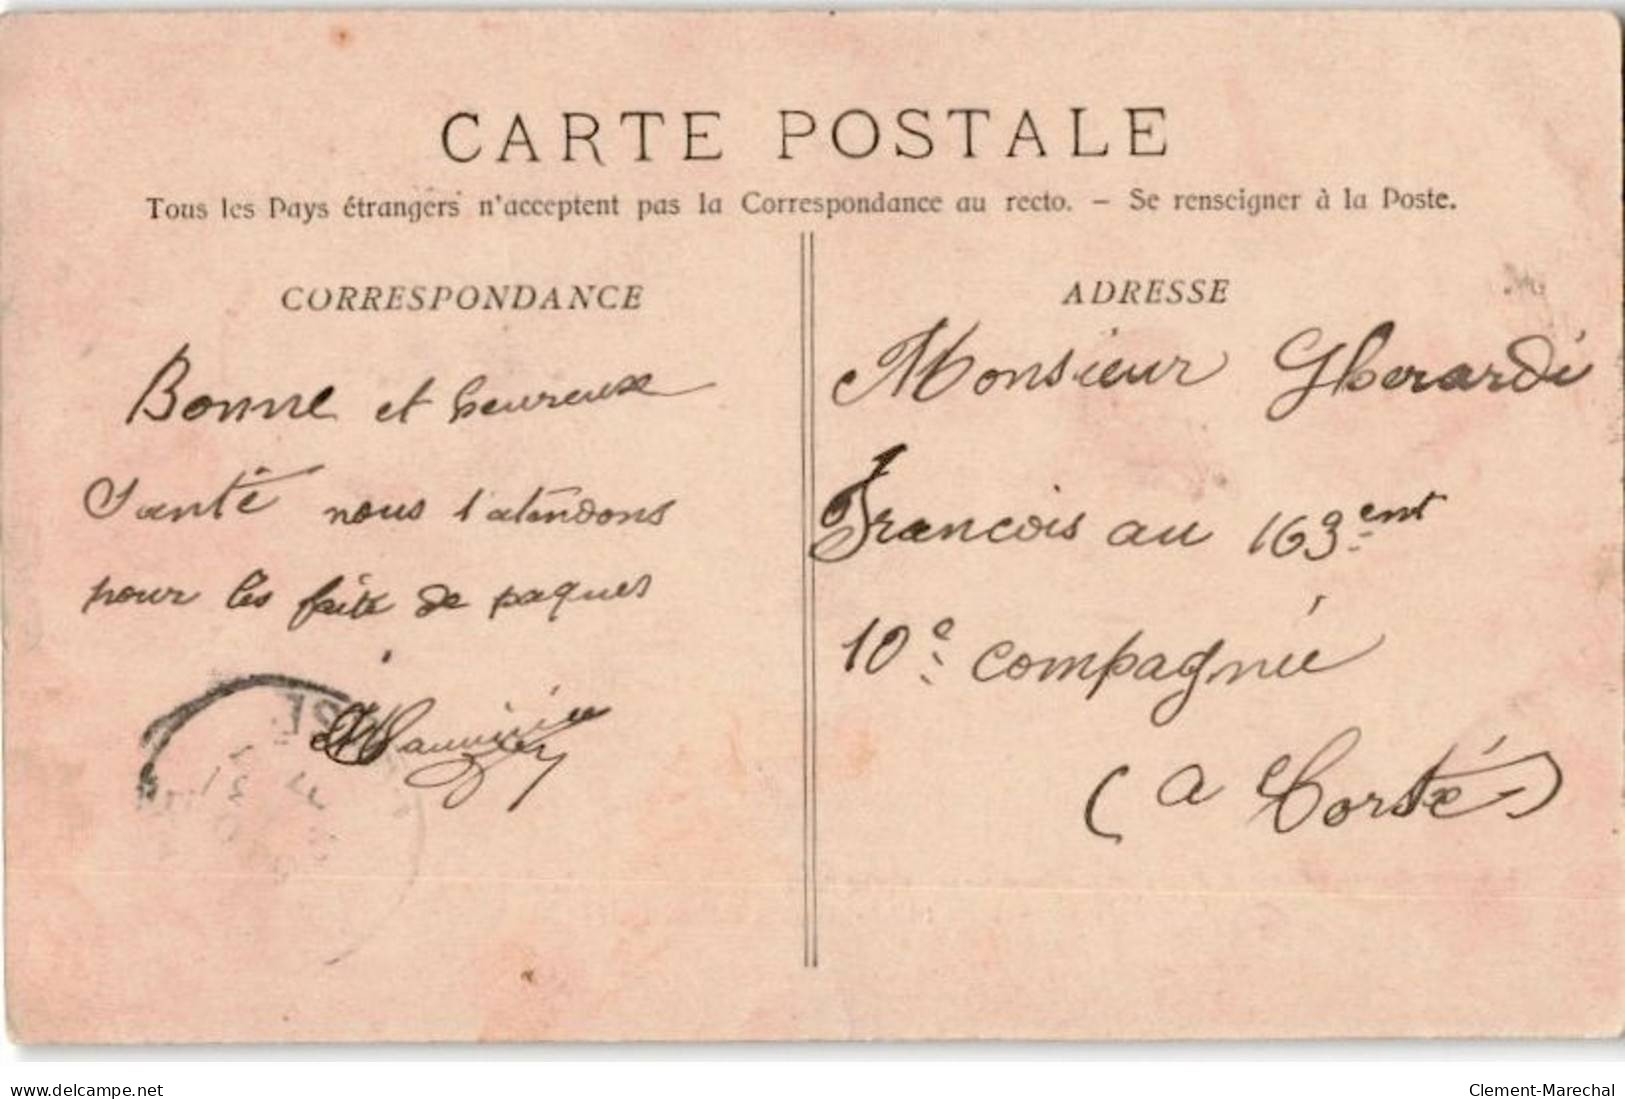 CARTE POSTALE
Tous les Pays étrangers n'acceptent pas la Correspondance au recto. — Se renseigner à la Poste.
CORRESPONDANCE
Bonne et heureuse
Santé nous t'atendons
pour les faite de paques
ADRESSE
Monsieur Gherardi
Francois au 163ent
10e compagnie
(a Corté)
www.delcampe.net
Clement-Marechal